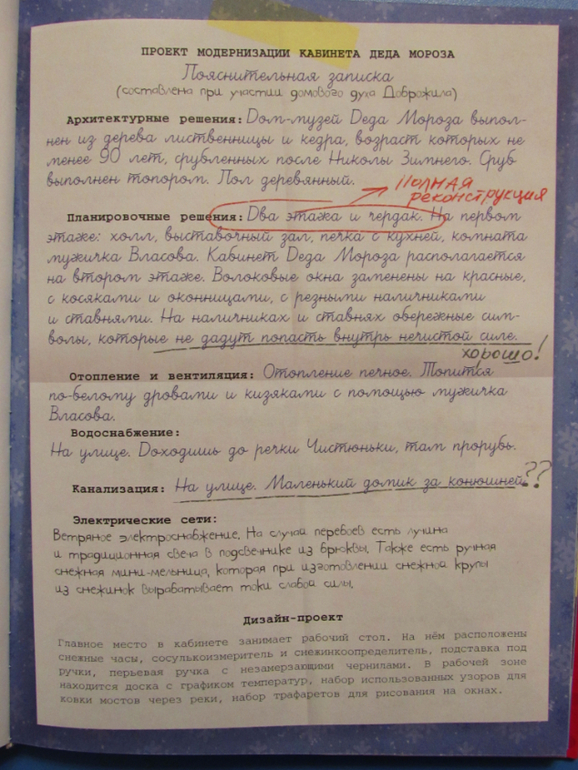 ПРОЕКТ МОДЕРНИЗАЦИИ КАБИНЕТА ДЕДА МОРОЗА
Пояснительная записка
(составлена при участии домового духа Доброжила)
Архитектурные решения: Дом-музей Деда Мороза выпол-
нен из дерева лиственницы и кедра, возраст которых не
менее 90 лет, срубленных после Николы Зимнего. Сруб
выполнен топором. Пол деревянный.
ПОЛНАЯ
реконструкция
Планировочные решения: Два этажа и чердак. На первом
этаже: холл, выставочный зал, печка с кухней, комната
мужичка Власова. Кабинет Деда Мороза располагается
на втором этаже. Волоковые окна заменены на красные,
с косяками и оконницами, с резными наличниками
и ставнями. На наличниках и ставнях обережные сим-
волы, которые не дадут попасть внутрь нечистой силе.
хорошо!
Отопление и вентиляция: Отопление печное. Топится
по-белому дровами и кизяками с помощью мужичка
Власова.
Водоснабжение:
На улице. Доходишь до речки Чистюньки, там прорубь.
Канализация: На улице. Маленький домик за конюшней??
Электрические сети:
Ветряное электроснабжение. На случай перебоев есть лучина
и традиционная свеча в подсвечнике из брюквы. Также есть ручная
снежная мини-мельница, которая при изготовлении снежной крупы
из снежинок вырабатывает токи слабой силы.
Дизайн-проект
Главное место в кабинете занимает рабочий стол. На нём расположены
снежные часы, сосулькоизмеритель и снежинкоопределитель, подставка под
ручки, перьевая ручка с незамерзающими чернилами. В рабочей зоне
находится доска с графиком температур, набор использованных узоров для
ковки мостов через реки, набор трафаретов для рисования на окнах.